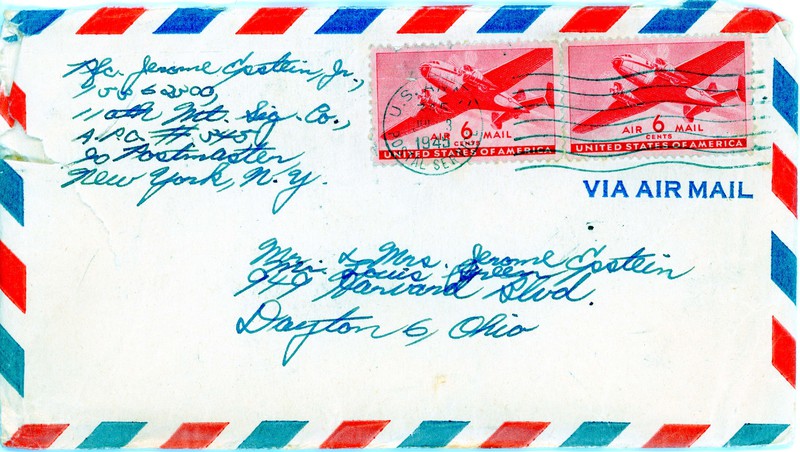 Pfc. Jerome Epstein, Jr.,
110th Mt. Sig. Co.,
A.P.O. # 345
c/o Postmaster
New York, N.Y.
U.S. ARMY
1945
POSTAL SERVICE
AIR 6 MAIL
CENTS
UNITED STATES OF AMERICA
AIR 6 MAIL
CENTS
UNITED STATES OF AMERICA
VIA AIR MAIL
Mr. & Mrs. Jerome Epstein
Mr. Louis Green
949 Harvard Blvd.
Dayton 6, Ohio